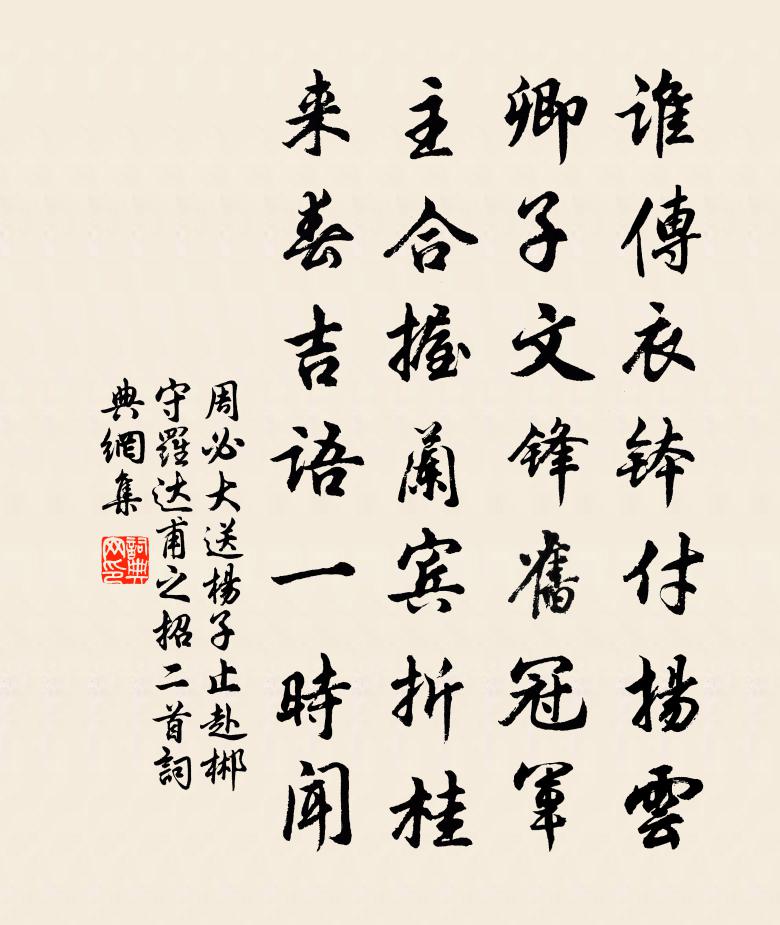 誰傳衣鉢付揚雲
卿子文鋒舊冠軍
主合握蘭宾折桂
来春吉語一時聞
周必大送楊子止赴郴
守羅达甫之招二首詞
典網集
詞典网印